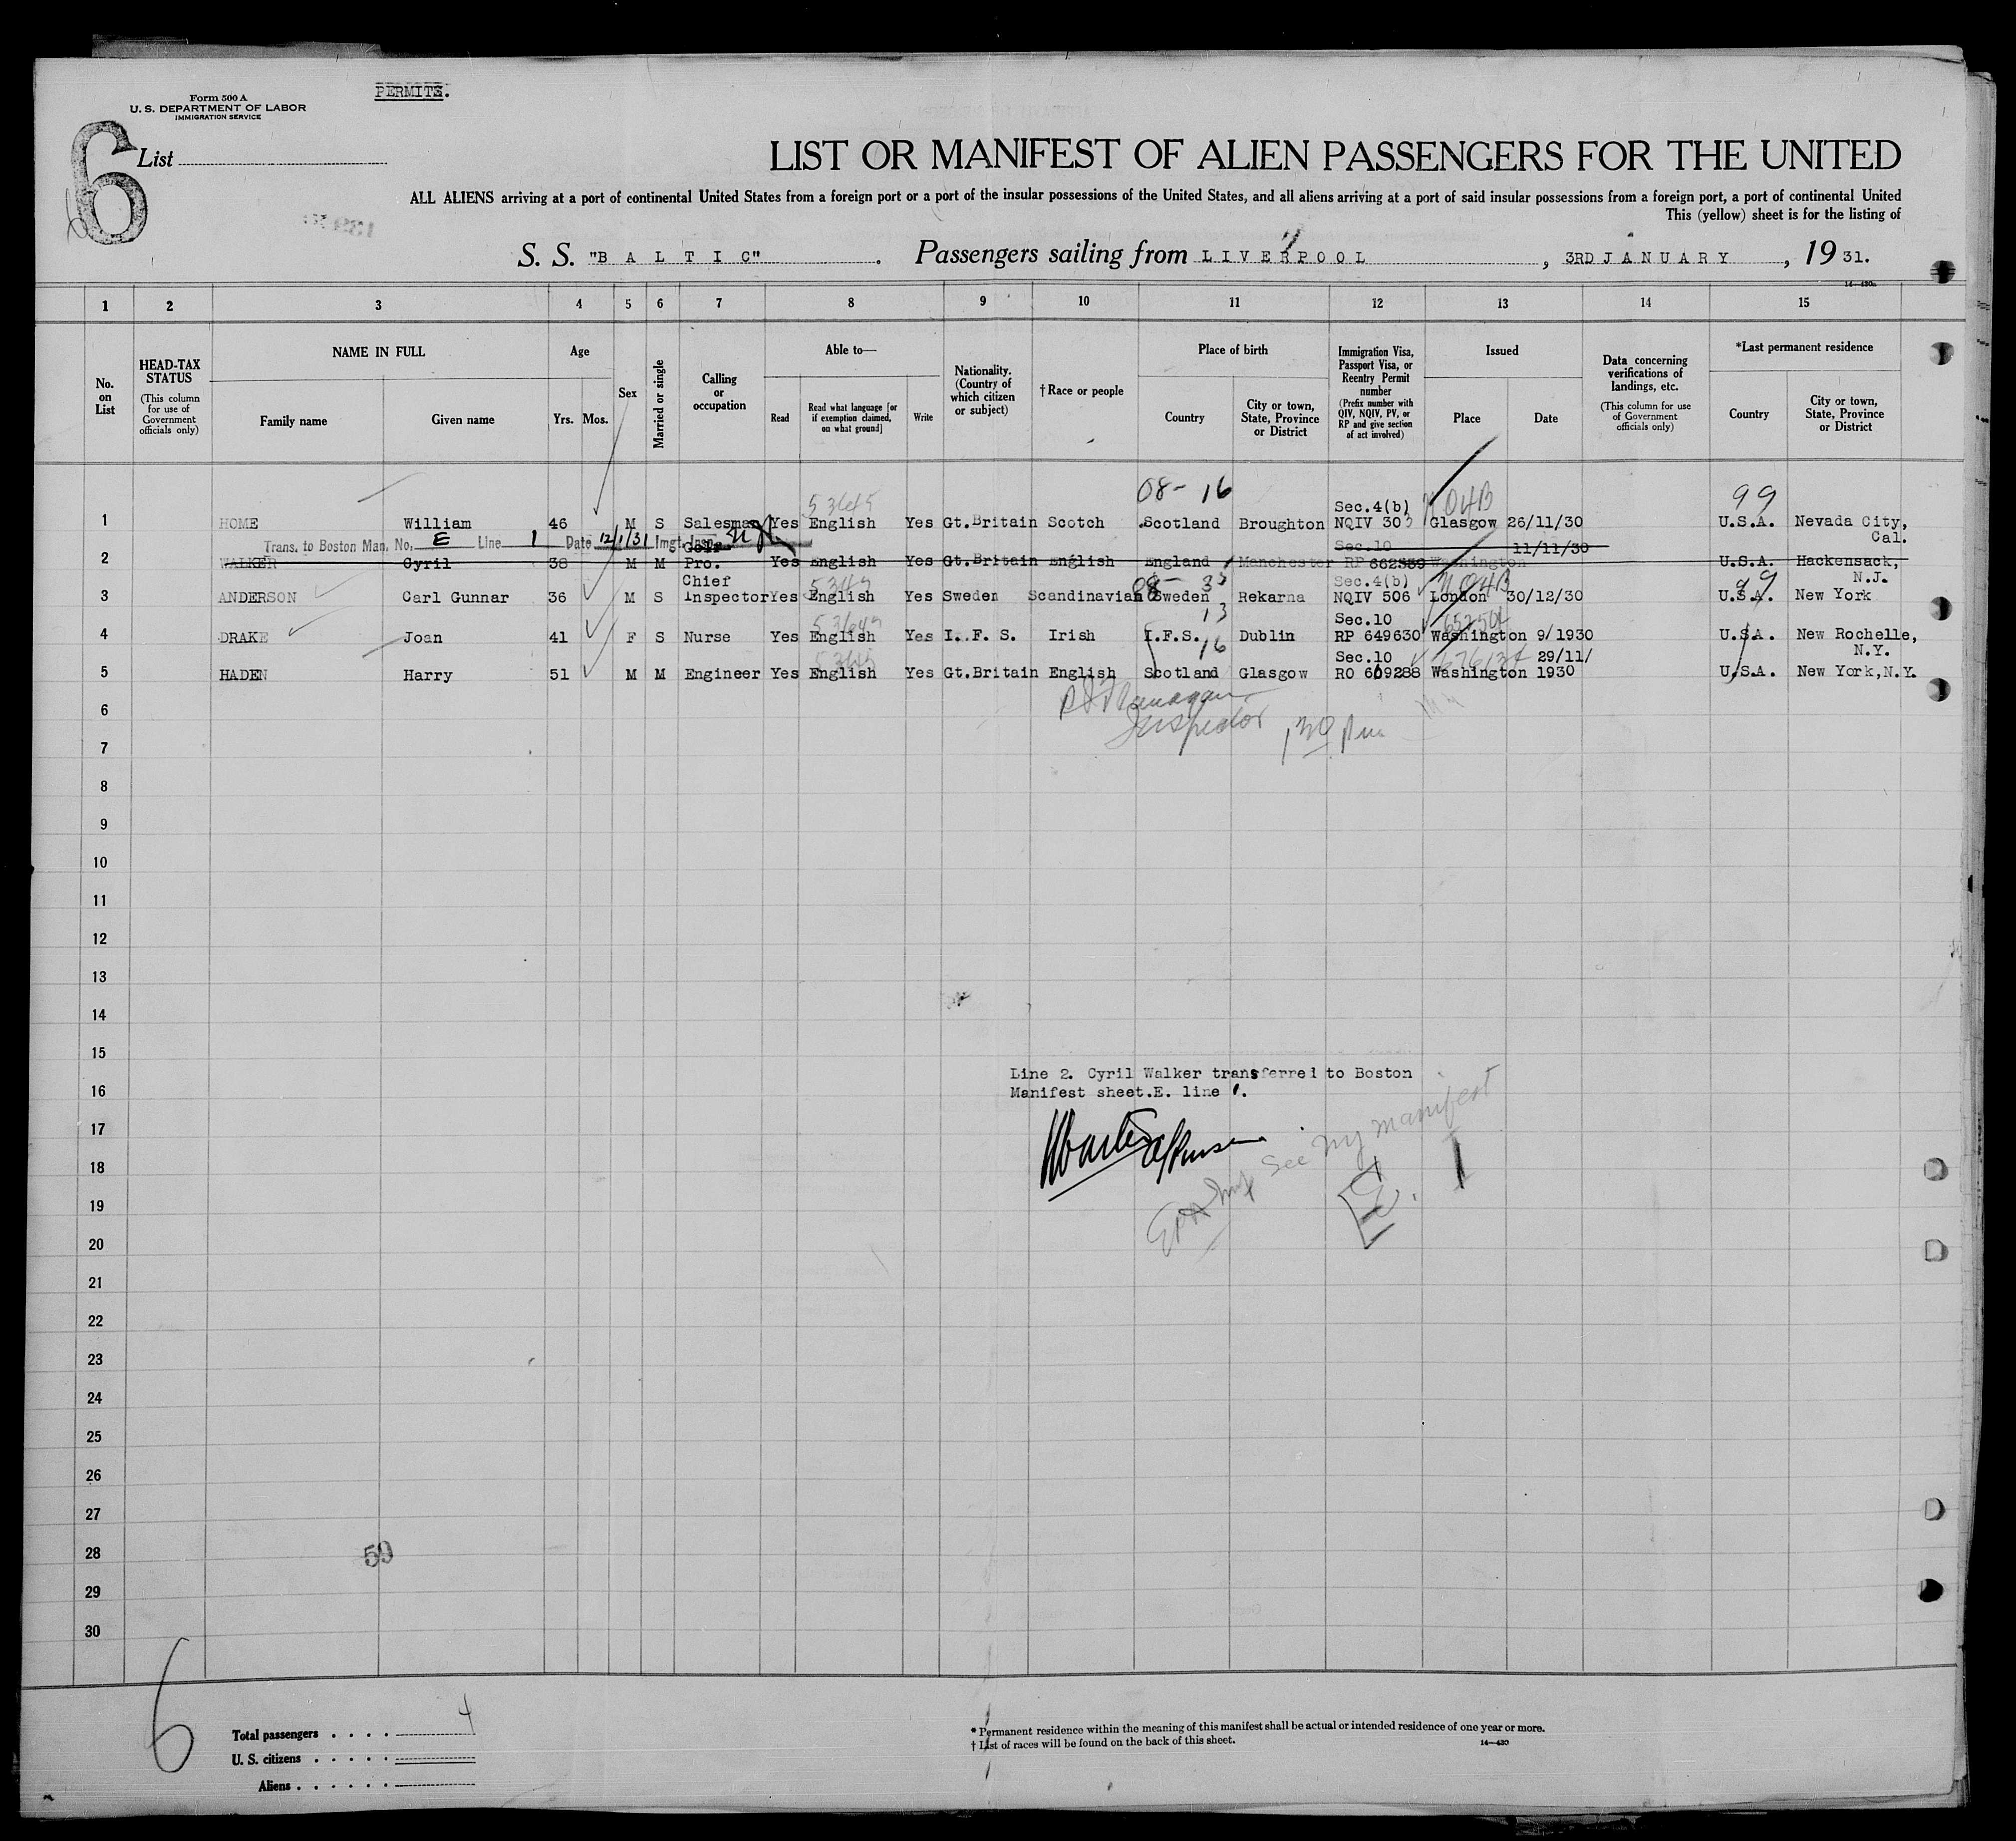 Form 500 A
U. S. DEPARTMENT OF LABOR
IMMIGRATION SERVICE
PERMITS.
6
List
LIST OR MANIFEST OF ALIEN PASSENGERS FOR THE UNITED
ALL ALIENS arriving at a port of continental United States from a foreign port or a port of the insular possessions of the United States, and all aliens arriving at a port of said insular possessions from a foreign port, a port of continental United
This (yellow) sheet is for the listing of
S. S. "B A L T I C" . Passengers sailing from LIVERPOOL , 3RD JANUARY , 19 31.
14-430a
1 2 3 4 5 6 7 8 9 10 11 12 13 14 15
No. on List
HEAD-TAX STATUS (This column for use of Government officials only)
NAME IN FULL
Family name Given name
Age
Yrs. Mos.
Sex
Married or single
Calling or occupation
Able to—
Read Read what language [or if exemption claimed, on what ground] Write
Nationality. (Country of which citizen or subject)
† Race or people
Place of birth
Country City or town, State, Province or District
Immigration Visa, Passport Visa, or Reentry Permit number (Prefix number with QIV, NQIV, PV, or RP and give section of act involved)
Issued
Place Date
Data concerning verifications of landings, etc. (This column for use of Government officials only)
*Last permanent residence
Country City or town, State, Province or District
08- 16 99
53645 Sec.4(b) 04B
1 HOME William 46 M S Salesman Yes English Yes Gt.Britain Scotch Scotland Broughton NQIV 303 Glasgow 26/11/30 U.S.A. Nevada City, Cal.
Trans. to Boston Man. No. E Line 1 Date 12/1/31 Imgt. Insp.
Golf Sec.10 11/11/30
2 WALKER Cyril 38 M M Pro. Yes English Yes Gt.Britain English England Manchester RP 662359 Washington U.S.A. Hackensack, N.J.
Chief Sec.4(b) 04B 99
3 ANDERSON Carl Gunnar 36 M S Inspector Yes English Yes Sweden Scandinavian Sweden Rekarna NQIV 506 London 30/12/30 U.S.A. New York
13 Sec.10
4 DRAKE Joan 41 F S Nurse Yes English Yes I. F. S. Irish I.F.S. Dublin RP 649630 Washington 9/1930 U.S.A. New Rochelle, N.Y.
16 Sec.10 29/11/
5 HADEN Harry 51 M M Engineer Yes English Yes Gt.Britain English Scotland Glasgow RO 609288 Washington 1930 U.S.A. New York,N.Y.
6
Inspector 130 Pm
7
8
9
10
11
12
13
14
15
Line 2. Cyril Walker transferred to Boston
16
Manifest sheet.E. line 1.
17
See Ny manifest
18
E. 1
19
20
21
22
23
24
25
26
27
28
59
29
30
6
4
Total passengers . . . .
U. S. citizens . . . . .
Aliens . . . . . .
* Permanent residence within the meaning of this manifest shall be actual or intended residence of one year or more.
† List of races will be found on the back of this sheet. 14-430